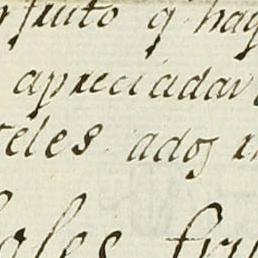 fruto q hay
apreciadar
teles ados
ales fru